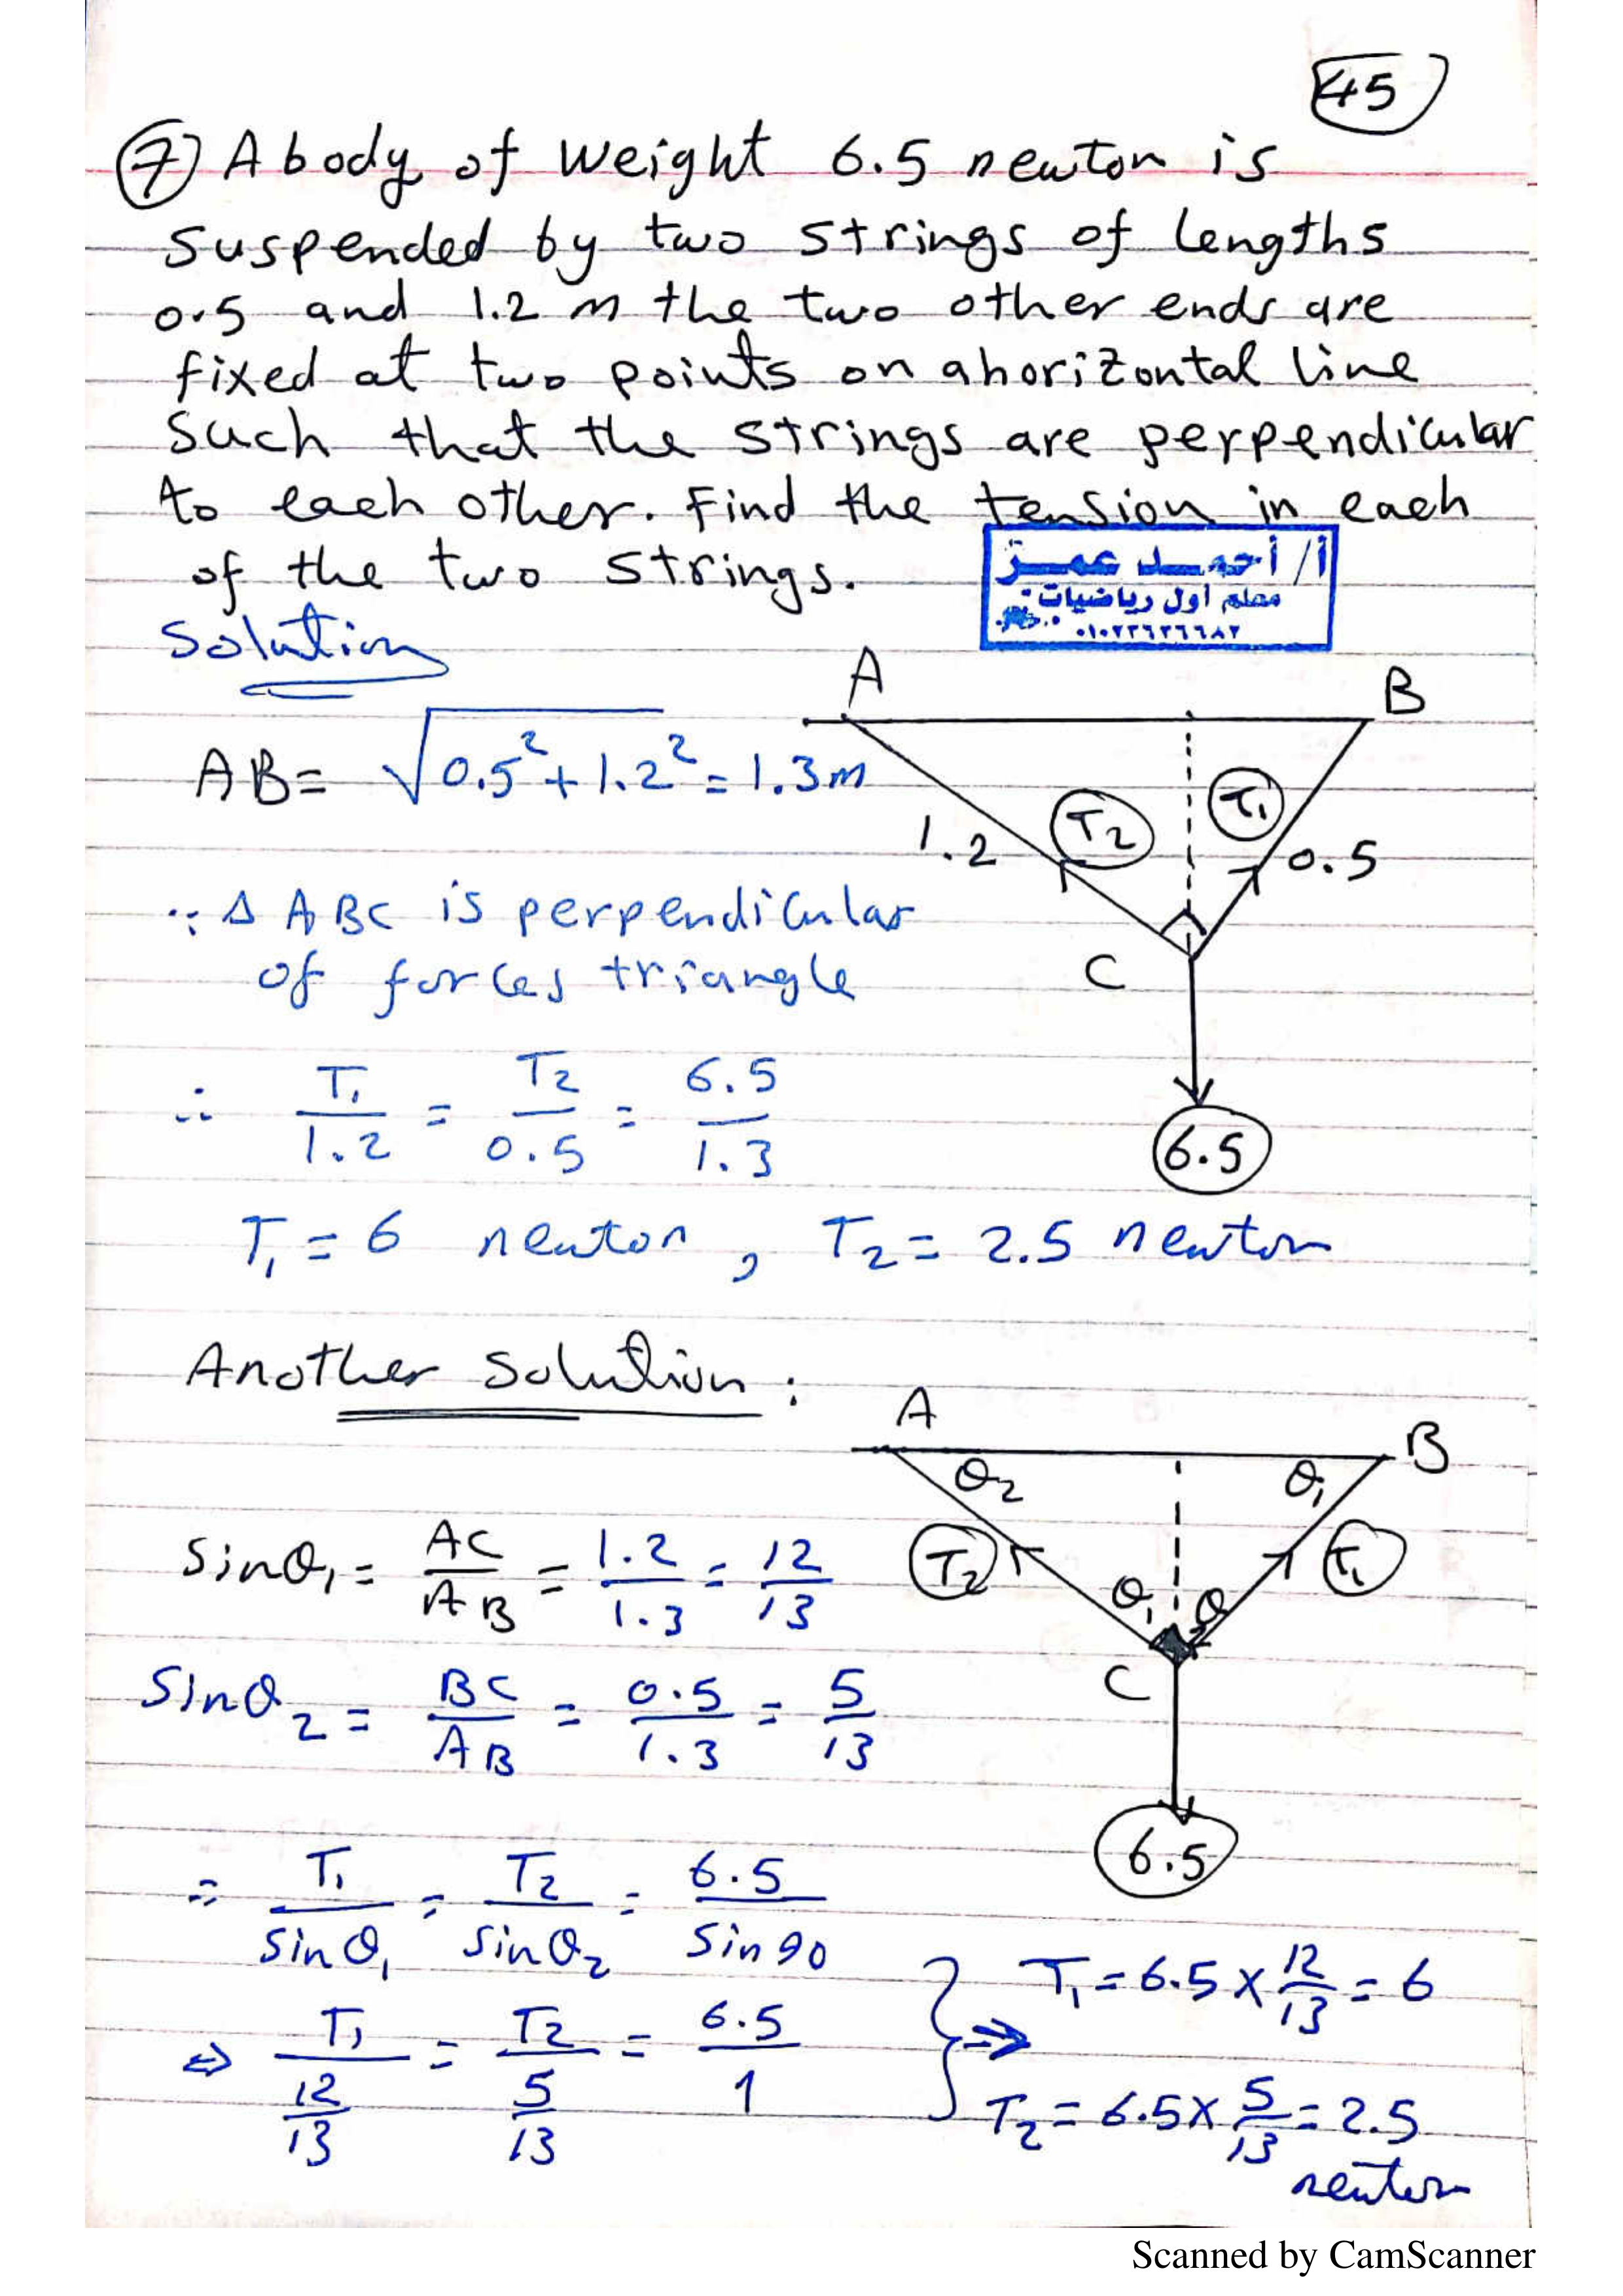 45
7 A body of weight 6.5 newton is
suspended by two strings of lengths
0.5 and 1.2 m the two other ends are
fixed at two points on a horizontal line
Such that the strings are perpendicular
to each other. Find the tension in each
of the two strings.
أ/ أحمد عمر
معلم أول رياضيات
Solution
A B
AB = √0.5² + 1.2² = 1.3 m
T₂ T₁
1.2 0.5
∵ Δ ABC is perpendicular
of forces triangle
C
∴ T₁/1.2 = T₂/0.5 = 6.5/1.3
6.5
T₁ = 6 newton , T₂ = 2.5 newton
Another solution :
A B
θ₂ θ₁
Sinθ₁ = AC/AB = 1.2/1.3 = 12/13
T₂ T₁
θ₁ θ₂
C
Sinθ₂ = BC/AB = 0.5/1.3 = 5/13
6.5
∴ T₁/sinθ₁ = T₂/sinθ₂ = 6.5/sin90
⇒ T₁/(12/13) = T₂/(5/13) = 6.5/1 } ⇒
T₁ = 6.5 × 12/13 = 6
T₂ = 6.5 × 5/13 = 2.5
newton
Scanned by CamScanner